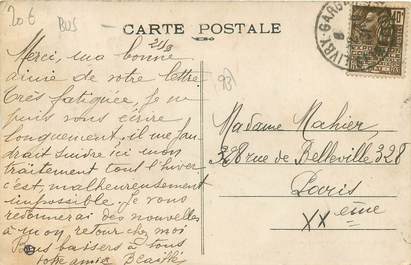 20 €
BUS
CARTE POSTALE
LIVRY-GARGAN
40c
93
Merci, ma bonne
aimée de votre lettre
Très fatiguée, je ne
puis vous écrire
longuement, il me fau
drait suivre ici mon
traitement tout l'hiver
c'est, malheureusement
impossible. Je vous
redonnerai des nouvelles
à mon retour chez moi
Bons baisers à tous
votre amie
Madame Mahier,
328 rue de Belleville 328
Paris
XXème